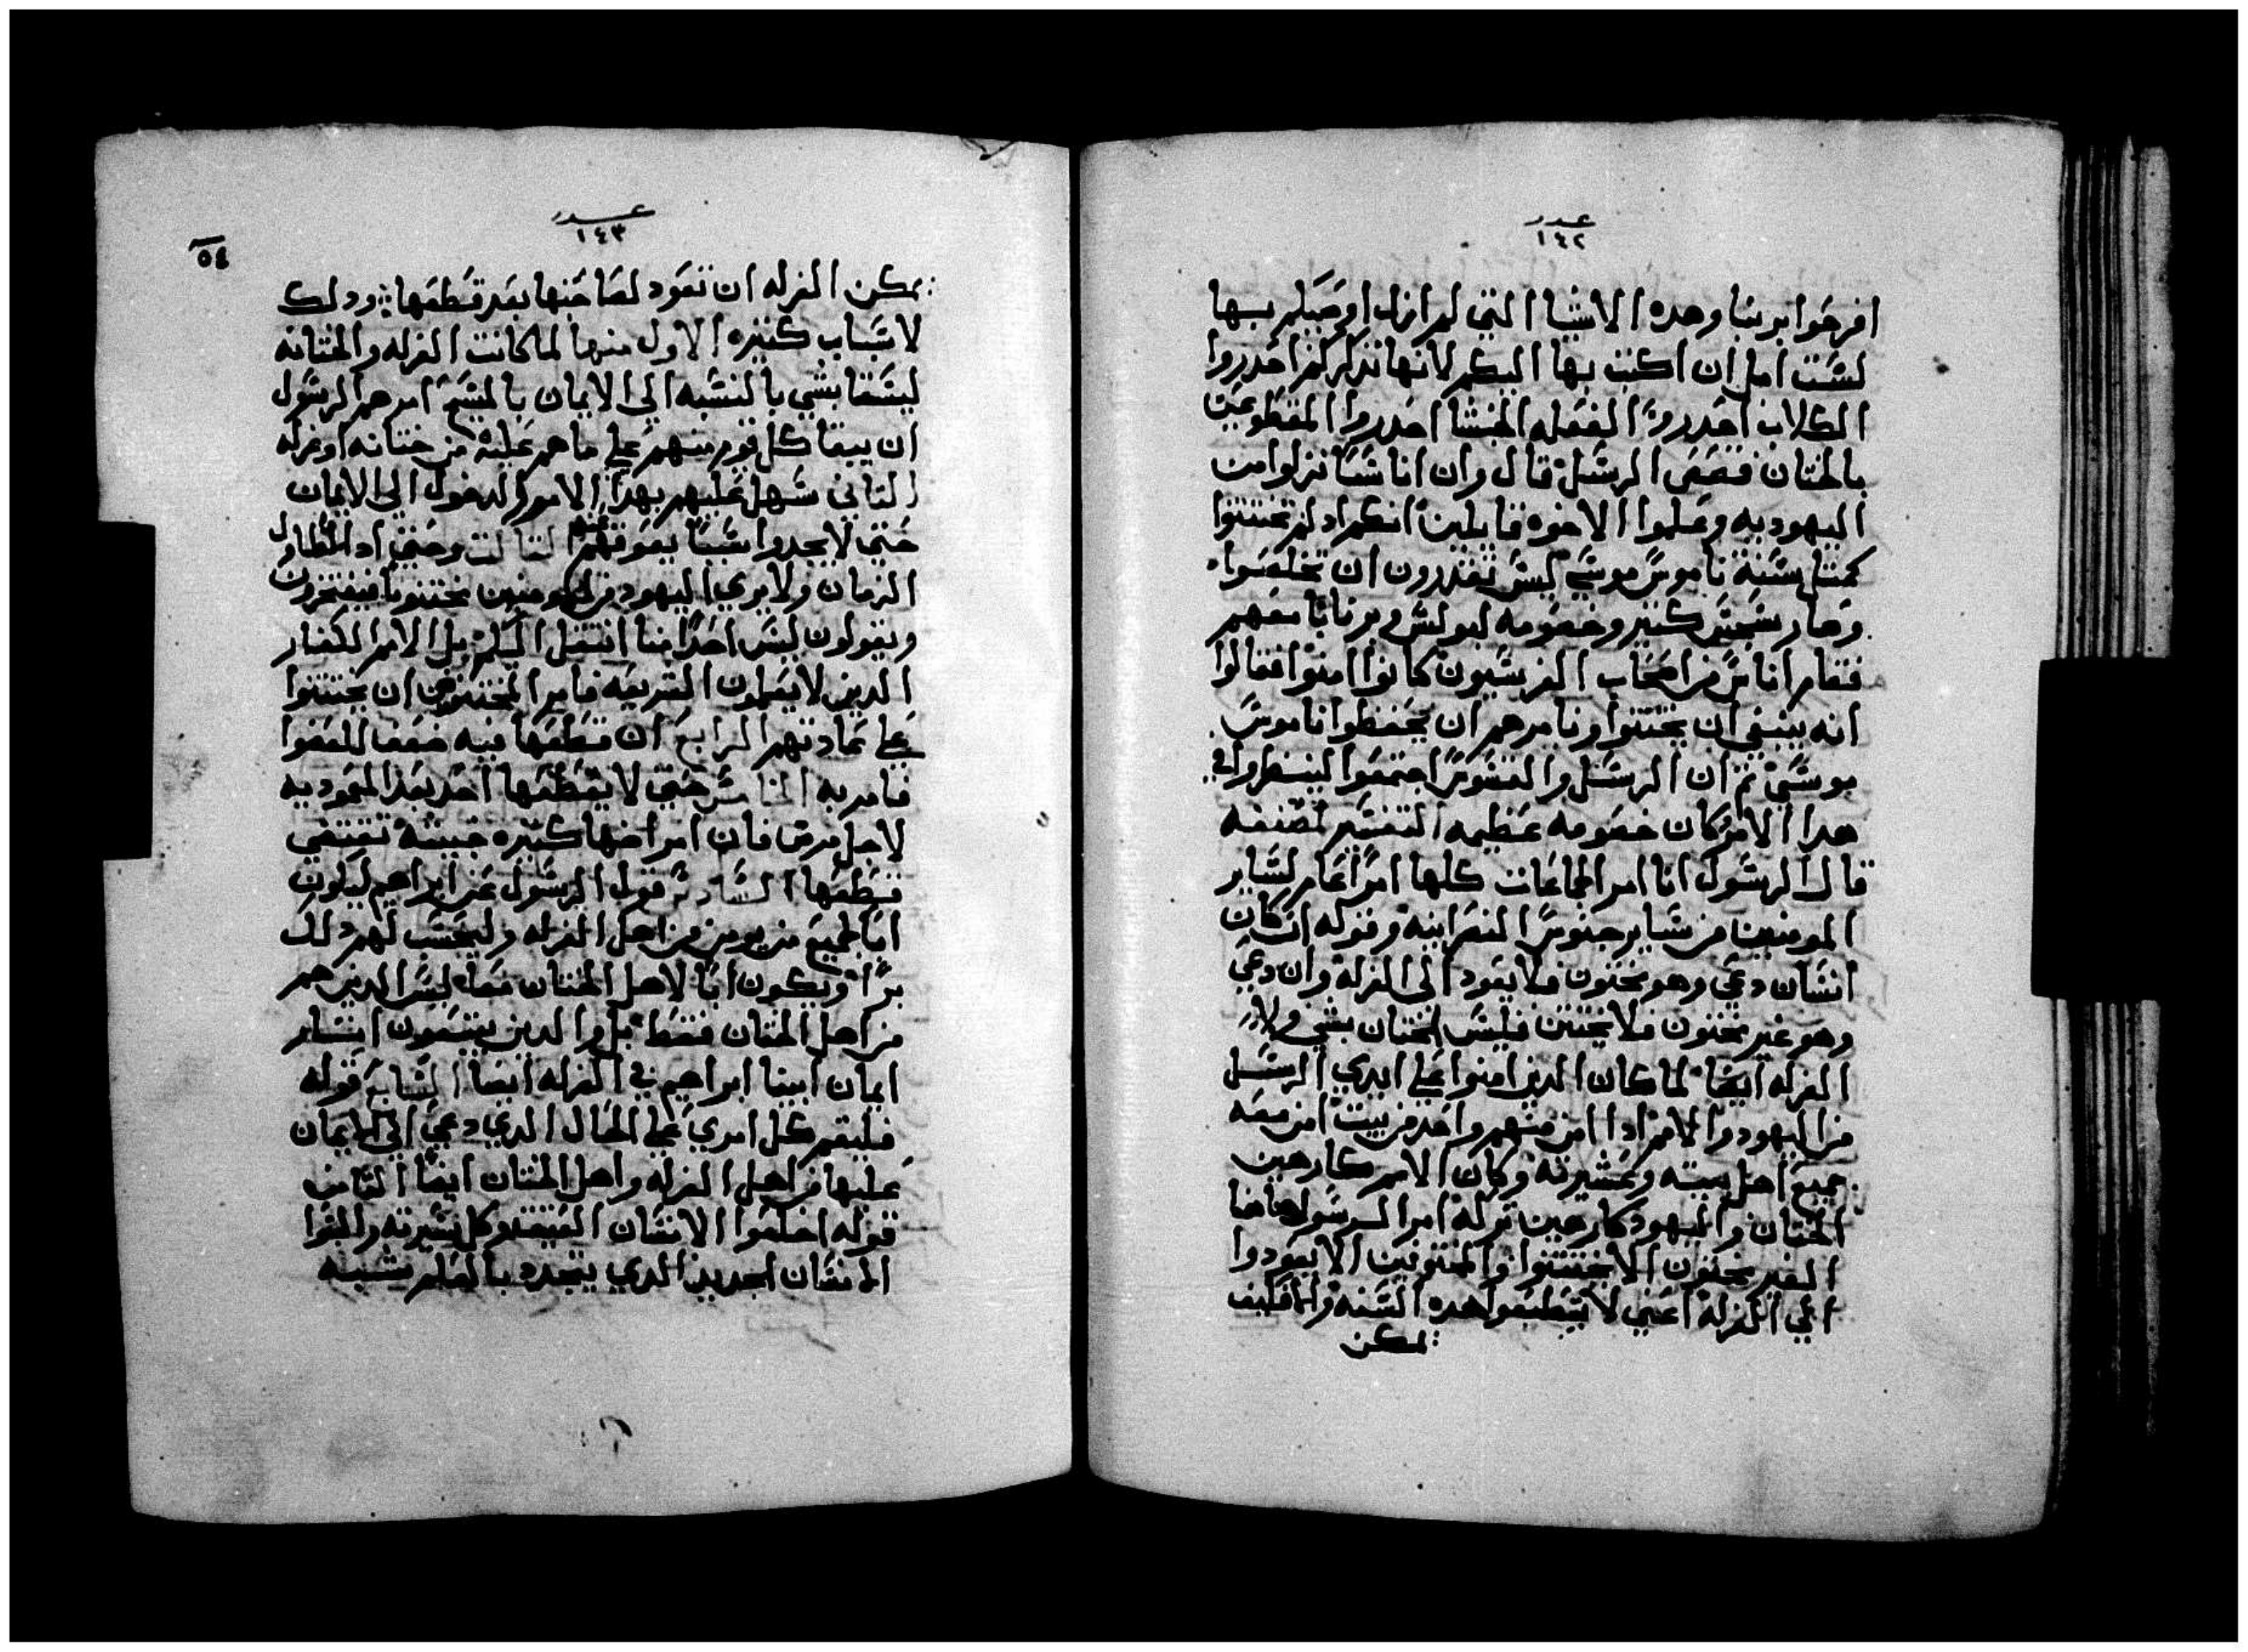 عدد
١٤٢
افرحوا بربنا وهده الاشيا التي لم ازل اوصيكم بها
لست امل ان اكتب بها اليكم لانها تدكركم احدروا
الكلاب احدروا الفعله الخبثا احدروا المقطوعين
بالختان قصص الرسل قال وان اناسا نزلوا من
اليهوديه وعلموا الاخوه قايلين انكم اد لم تختتنوا
كمتل سنة ناموس موسي ليس تقدرون ان تخلصوا
وصار سجس كتير وخصومه لبولس وبرنابا معهم
فقام اناس من اصحاب الفريسيون كانوا امنوا فقالوا
انه ينبغي ان يختتنوا ونامرهم ان يحفظوا ناموس
موسي تم ان الرسل والقسوس اجتمعوا لينظروا في
هدا الامر كان خصومه عظيمه التفسير لمصنفه
قال الرسول انا امر الجماعات كلها امرا عام لساير
المومنين من ساير جنوس النصرانيه وقوله ان كان
انسان دعي وهو مختون فلا يعود الي الغرله وان دعي
وهو غير مختون فلا يختتن فليس الختان بشي ولا
الغرله ايضا لما كان الدين امنوا علي ايدي الرسل
من اليهود والامم ادا امن منهم واحد من بيت امن معه
جميع اهل بيته وعشيرته وكان الامم كارهين
الختان واليهود كارهين تركه امر الرسول هاهنا
الغير مختون الا يختتنوا والمختونين الا يعودوا
الي الغرله اعني لا يتطبعوا هده السنه والا فكيف
يمكن
عدد
١٤٣
٥٤
يمكن الغرله ان تعود لصاحبها بعد قطعها ودلك
لاسباب كتيره الاول منها لما كانت الغرله والختانه
ليستا بشي بالنسبه الي الايمان بالمسيح امرهم الرسول
ان يبقا كل قوم منهم علي ما هم عليه من ختانه او غرله
التاني سهل عليهم بهدا الامر الدخول الي الايمان
حتي لا يجدوا سببا يعوقهم عنه التالت وحتي ادا تطاول
الزمان ولا يري اليهود من المومنين مختونا فيفتخرون
ويقولون ليس احدا منا انتقل اليكم بل الامم الكفار
الدين لا يعلمون الشريعه فامر المختتنين ان يختتنوا
علي عادتهم الرابع ان قطعها فيه ضعف للعضوا
فامر به الخامس حتي لا يقطعها احد بعد المعموديه
لاجل مرض فان امراضها كتيره خبيثة تقتضي
قطعها السادس قول الرسول عن ابراهيم ليكون
ابا لجميع من يومن من اهل الغرله وليحسب لهم دلك
برا ويكون ابا لاهل الختان معا ليس الدين هم
من اهل الختان فقط بل والدين يتبعون اتار
ايمان ابينا ابراهيم في الغرله ايضا السابع قوله
فليقم كل امري علي الحال الدي دعي الي الايمان
عليها من اهل الغرله واهل الختان ايضا التامن
قوله اخلعوا الانسان العتيق وكل سيرته والبسوا
الانسان الجديد الدي يتجدد بالعلم بشبه